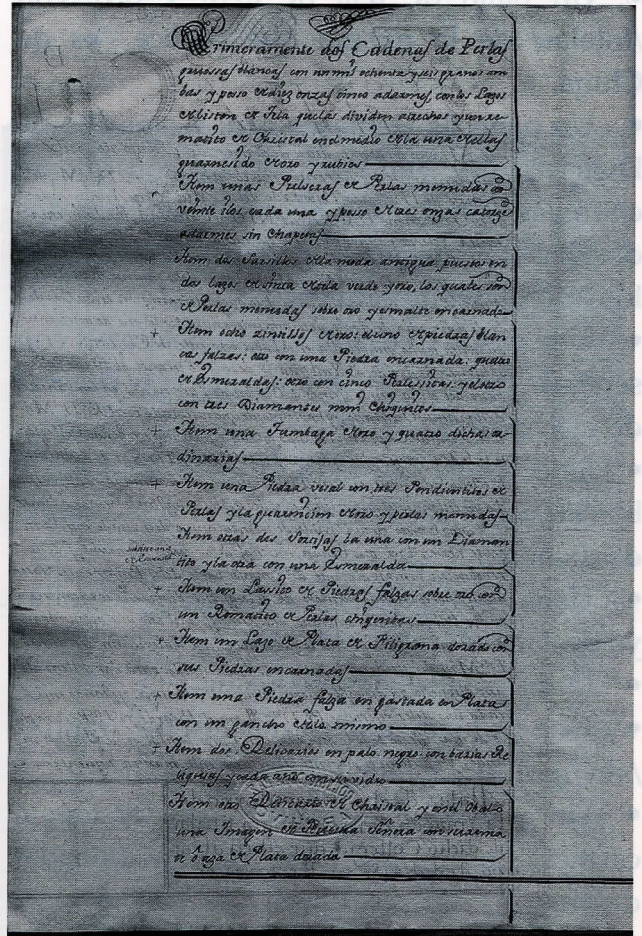 Primeramente dos Cadenas de Perlas
preciosas blancas con un mil ochenta y seis granos am
bas y pesso de diez onzas cinco adarmes, con los Lazos
de liston de que las dividen a trechos y un re
matito de Christal en el medio de la una de ellas
guarnesido de oro y rubies
Item unas Pulseras de Perlas menudas con
veinte ilos cada una y pesso de tres onzas catorze
adarmes sin Chapetas
Item dos Sarsillos de la moda antigua puestos en
dos lazos de sinta de oda verde y oro, los quales son
de Perlas menudas sobre oro y esmalte encarnado
Item ocho zintillos de oro: el uno de piedras blan
cas falzas: otro con una Piedra encarnada:
de Esmeraldas: otro con cinco y el otro
con tres Diamantes muy chiquitos
Item una Tumbaga de oro y quatro dichas or
dinarias
Item una Piedra con tres Pendientitos de
Perlas y la guarnicion de oro y perlas menudas
Item otras dos Sortijas la una con un Diaman
tito y la otra con una Esmeralda
Item un Lassito de Piedras falzas sobre oro con
un Remacito de Perlas chiquitas
Item un Lazo de Plata de Filigrana dorada con
sus Piedras encarnadas
Item una Piedra falza en gastada en Plata
con un gancho de lo mismo
Item dos Relicarios en palo negro con barias Re
liquias y cada uno con su vidro
Item otro Relicario de Christal y en el Obalo
una Imagen de Nuestra Señora
de onza de Plata dorada